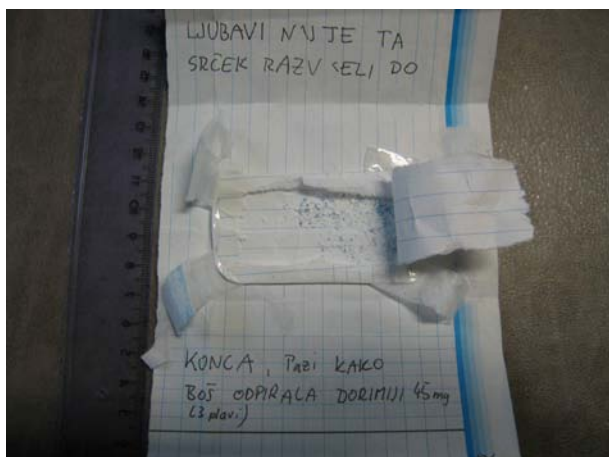 LJUBAVI NUJE TA
SRČEK RAZVSELI DO
KONCA, Pazi KAKO
BOŠ ODPIRALA DORIMIJI 45mg
(3 plavi)